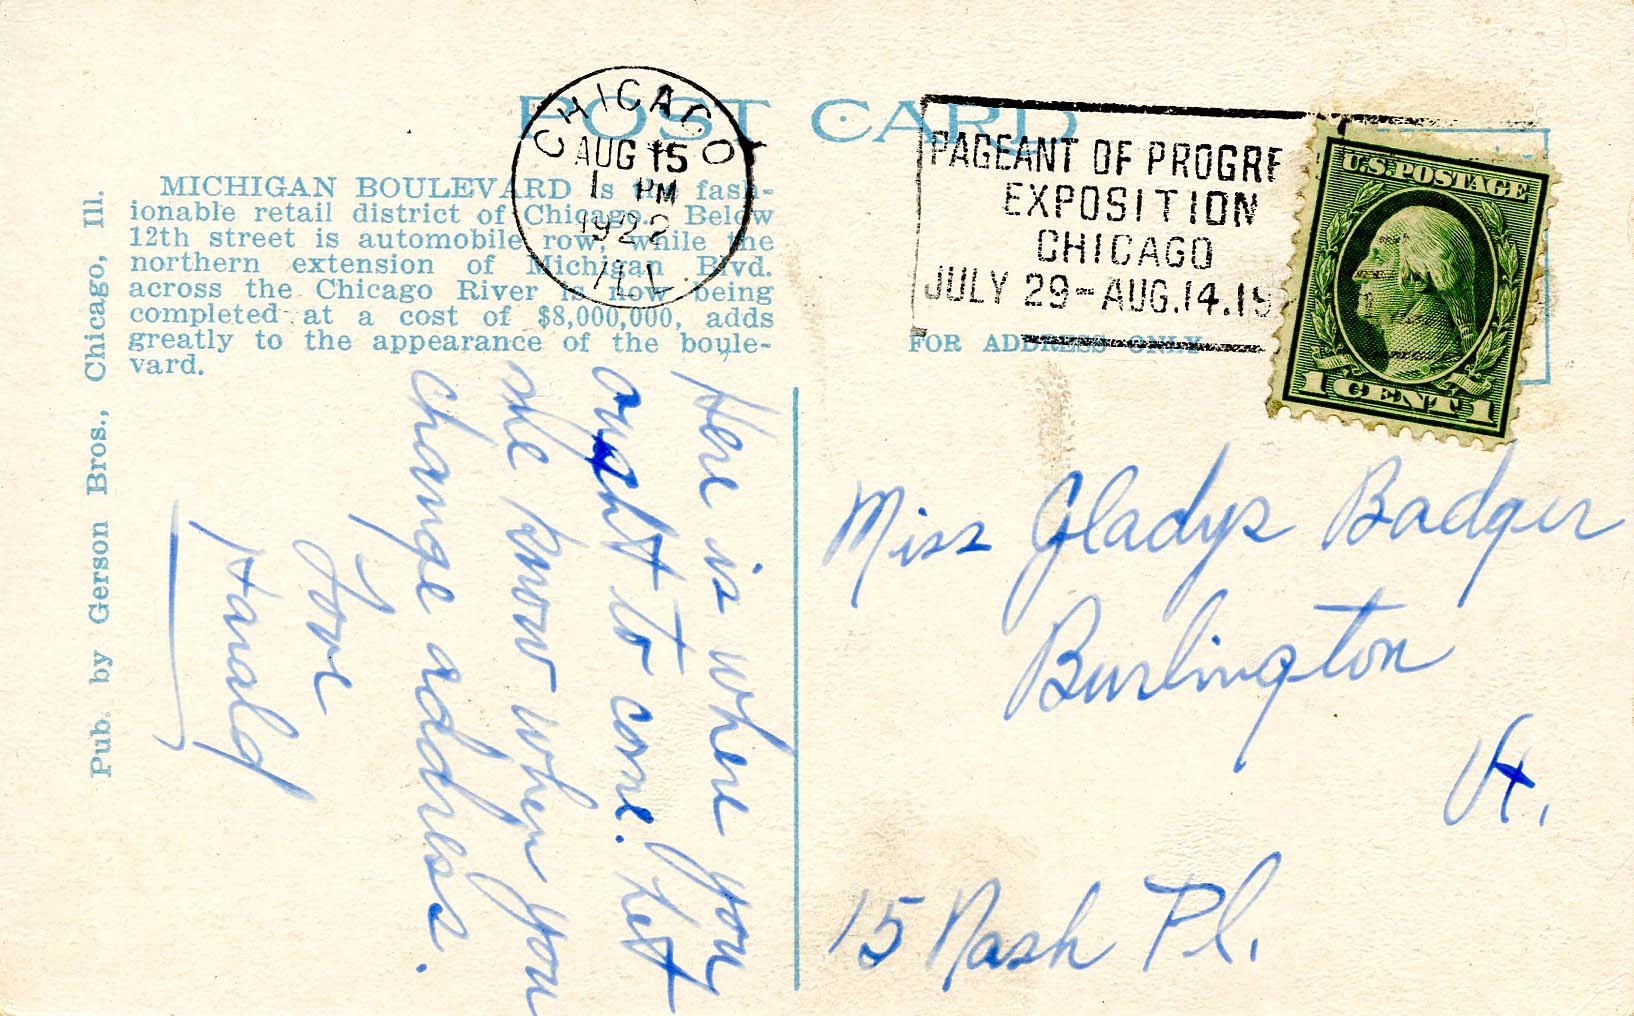 POST CARD
CHICAGO
AUG 15
1 PM
1922
ILL.
PAGEANT OF PROGRE
EXPOSITION
CHICAGO
JULY 29-AUG.14.19
U.S.POSTAGE
1 CENT 1
MICHIGAN BOULEVARD is the fash-
ionable retail district of Chicago. Below
12th street is automobile row, while the
northern extension of Michigan Blvd.
across the Chicago River is now being
completed at a cost of $8,000,000, adds
greatly to the appearance of the boule-
vard.
FOR ADDRESS ONLY
Pub. by Gerson Bros., Chicago, Ill.
Here is where you
ought to come. Let
me know when you
change address.
Love
Harald
Miss Gladys Badger
Burlington
Vt.
15 Nash Pl.